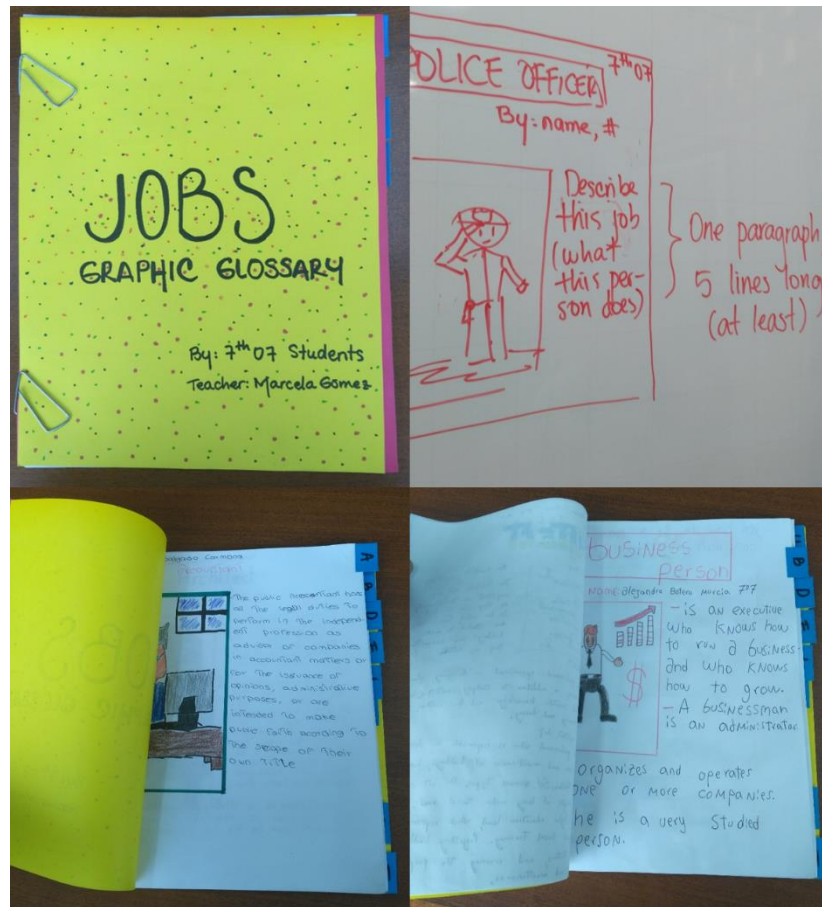 JOBS
GRAPHIC GLOSSARY
By: 7th 07 Students
Teacher: Marcela Gomez
POLICE OFFICER
7th 07
By: name, #
Describe
this job
(what
this per-
son does)
One paragraph
5 lines long
(at least)
A
B
D
The public accountant has
as the legal duties to
perform in the independ-
ent profession as
advisor of companies
in accountant matters or
for the issuance of
opinions, administrative
purposes, or are
intended to make
public faith according to
the scope of their
own title
business
person
Name: Alejandro Botero Murcia 707
B
D
- is an executive
who knows how
to run a business
and who knows
how to grow.
- A businessman
is an administrator
$
organizes and operates
one or more companies.
he is a very studied
person.